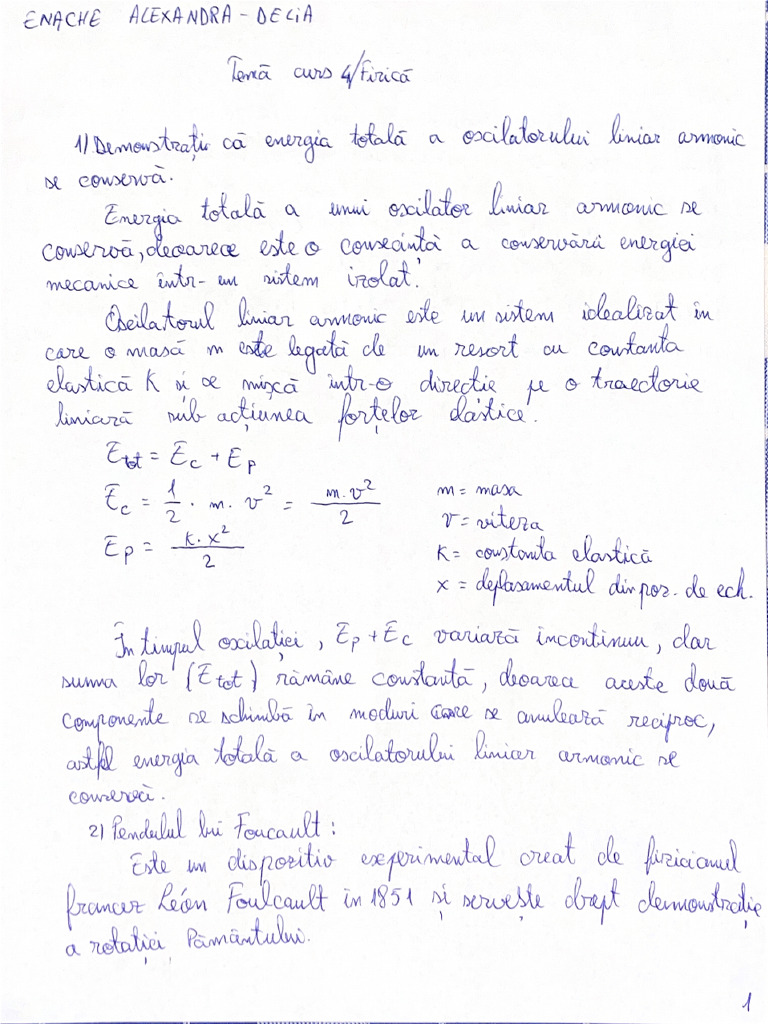 ENACHE ALEXANDRA-DELIA
Temă curs 4/Fizică
1) Demonstrați că energia totală a oscilatorului liniar armonic
se conservă.
Energia totală a unui oscilator liniar armonic se
conservă, deoarece este o consecință a conservării energiei
mecanice într-un sistem izolat.
Oscilatorul liniar armonic este un sistem idealizat în
care o masă m este legată de un resort cu constanta
elastică K si se mișcă într-o directie pe o traectorie
liniară sub acțiunea forțelor elastice.
Etot = Ec + Ep
Ec = 1/2 · m · v² = m·v²/2
m = masa
v = viteza
Ep = k·x²/2
K = constanta elastică
x = deplasamentul din poz. de ech.
În timpul oscilației, Ep + Ec variază incontinuu, dar
suma lor (Etot) rămâne constantă, deoarece aceste două
componente se schimbă în moduri care se anulează reciproc,
astfel energia totală a oscilatorului liniar armonic se
conservă.
2) Pendulul lui Foucault:
Este un dispozitiv experimental creat de fizicianul
francez Léon Foulcault în 1851 și servește drept demonstrație
a rotației Pământului.
1